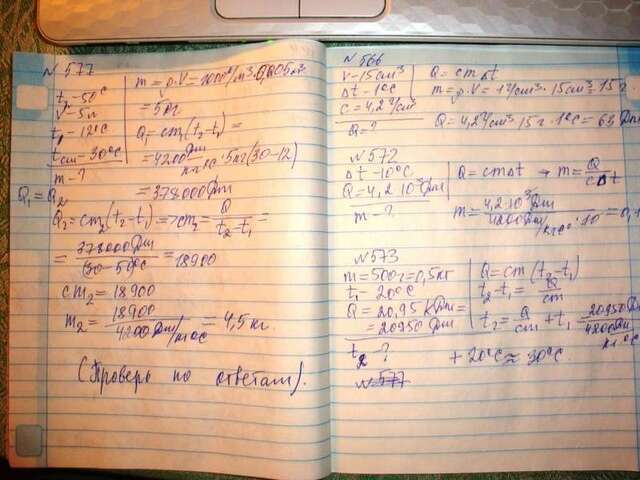 N 577
t₁ - 50°C
V - 5л
t₁ - 12°C
t см - 30°C
m - ?
m = ρ·V = 1000 кг/м³·0,005 м³
= 5кг
Q₁ = cm₁(t₂-t₁) =
= 4200 Дж/кг°С · 5кг(30-12)
= 378000Дж
Q₁ = Q₂
Q₂ = cm₂(t₂-t₁) => cm₂ = Q/t₂-t₁ =
= 378000Дж/(30-50°C = 18900
cm₂ = 18900
m₂ = 18900/4200Дж/кг°С = 4,5 кг.
(Проверь по ответам).
N 566
V - 15см³
Δt - 1°C
c = 4,2 /см³
Q = ?
Q = cmΔt
m = ρ·V = 1г/см³ · 15см³ = 15г
Q = 4,2 /см³ 15г·1°C = 63 Дж
N 572
Δt - 10°C
Q = 4,2·10³Дж
m - ?
Q = cmΔt → m = Q/cΔt
m = 4,2·10³Дж/4200Дж/кг°С·10 = 0,
N 573
m = 500г = 0,5кг
t₁ - 20°C
Q = 20,95 КДж =
= 20950 Дж
t₂ ?
Q = cm(t₂-t₁)
t₂-t₁ = Q/cm
t₂ = Q/cm + t₁ 20950Дж/4200Дж/кг°С
+ 20°C ≈ 30°C.
N 577